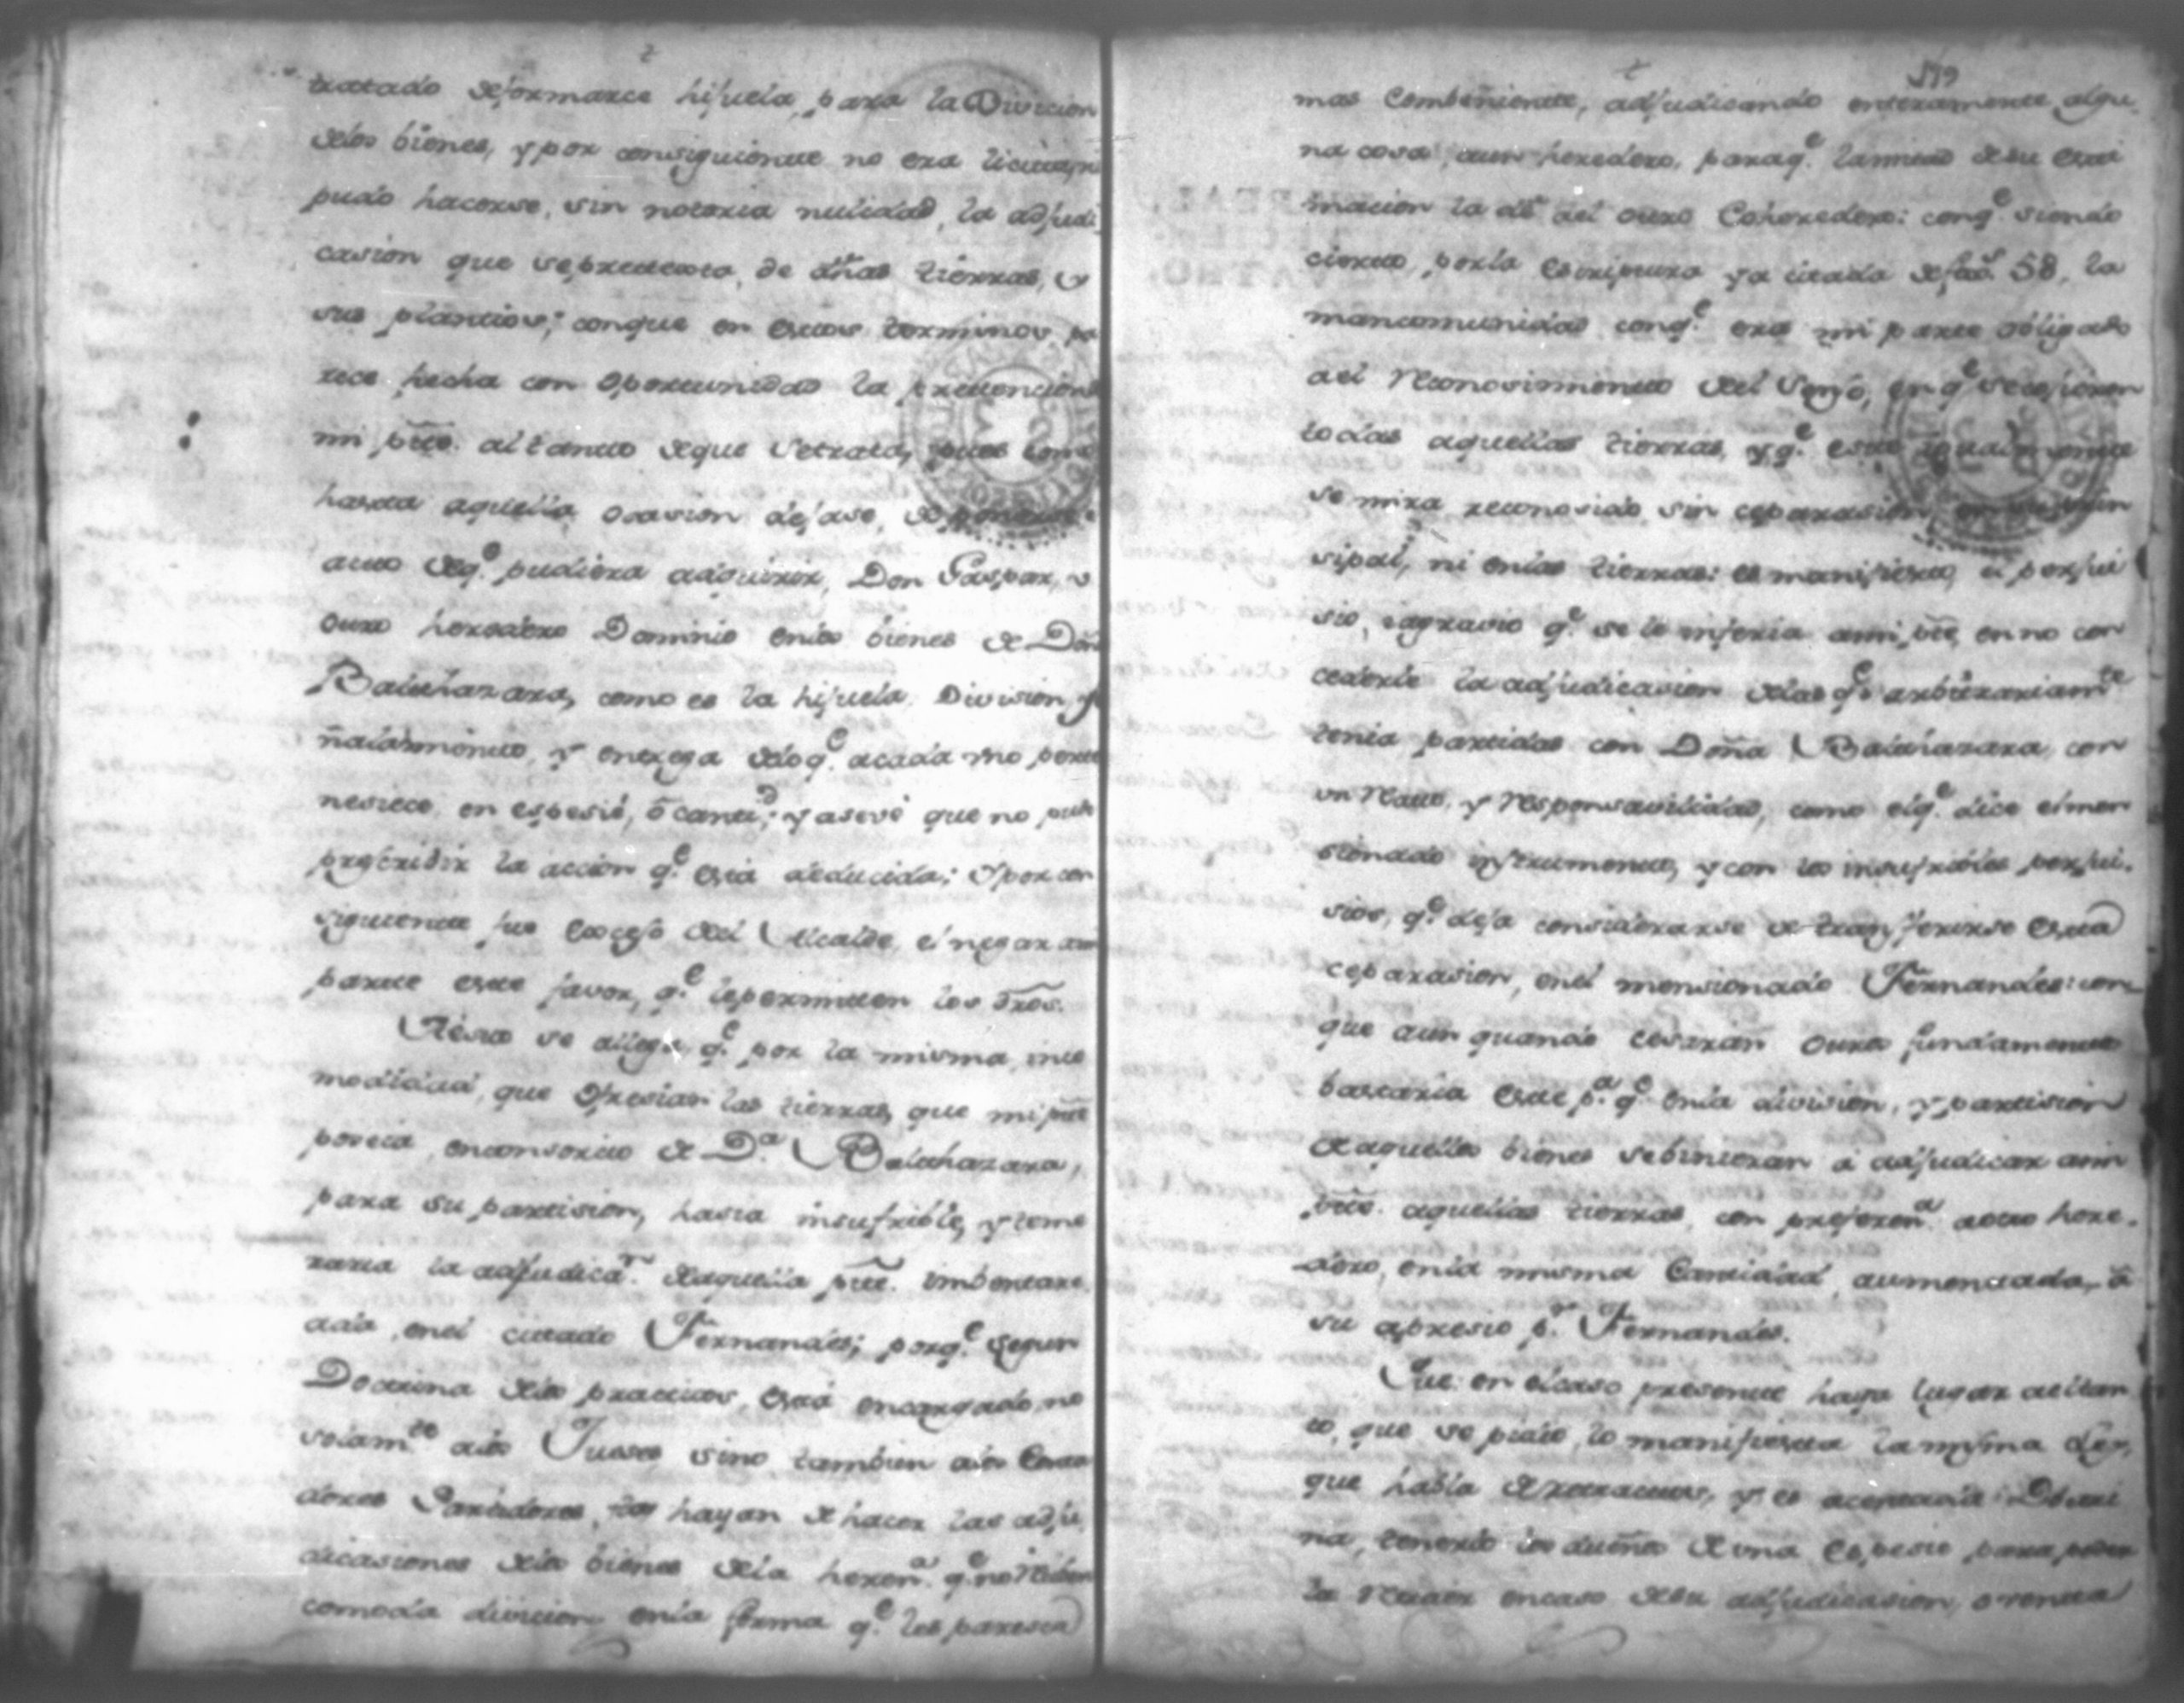 tratado deformarce hijuela, para la Divicion
delos bienes, y por consiguiente no era licita, ni
pudo hacerse, sin notoria nulidad, la adjudi
casion que sepretexta, de dhas tierras, y
sus plantios; conque en estos terminos, pa
rece hecha con oportunidad la pretencion
mi pte. al tanto deque setrata, pues
hasta aquella ocasion
auto deq.e pudiera adquirir, Don Gaspar, u
outro heredero Dominio enlos bienes de Doña
Balthazara, como es la hijuela, Division, se
ñalamiento, y entrega delo q.e acada uno perte
nesiece, en espesie, ó cantd.; y asevé que no pudo
prescribir la accion q.e está deducida; y por con
siguiente fue exceso del Alcalde, el negar ami
parte este favor, q.e lepermiten los dros.
Aésto se allega, q.e por la misma, inco
modidad, que ofresian las tierras, que mi pte
poseia, enconsorcio de D.a Balthazara,
para su partision, hacia insufrible, y teme
raria la adjudica.n deaquella pte. imbentare
ada, enel citado Fernandes; porq.e segun
Doctrina delos practicos, está encargado, no
solam.te alos Jueses, sino tambien alos Conta
dores Partidores, hayan de hacer las adju
dicasiones delos bienes dela heren.a q.e no Resiben
comoda divicion enla forma q.e les paresca
519
mas Combeniente, adjudicando enteramente algu
na cosa, aun heredero, paraq.e lamitad desu esti
macion la dé al outro Coheredero: conq.e siendo
cierto, porla escriptura ya citada defxas. 58, la
mancomunidad conq.e era mi parte obligado
al Reconosimiento del Senso, en q.e
todas aquellas tierras, y q.e este igualmente
se mira reconosido, sin ceparasion, prin
sipal, ni enlas tierras: es manifiesto, el perjui
sio, iagravio q.e se le inferia ami pte, en no con
cederle la adjudicasion delas q.e arbitrariam.te
tenia partidas con Doña Balthazara, con
un Reato, y Responsavilidad, como elq.e dice elmen
sionado ynstrumento, y con los insufribles perjui.
sios, q.e deja considerarse de transferirse esta
ceparasion, enel mensionado Fernandes: con
que aun quando cesaran outros fundamentos
bastaria este p.a q.e enla division, y partision
deaquellos bienes sebinieran á adjudicar ami
pte. aquellas tierras, con preferen.a aotro here.
dero, enla misma Cantidad, aumentada, ó
su apresio p.r Fernandes.
Que en elcaso presente haya lugar aeltan
to, que se pidió, lo manifiesta la mysma Ley,
que habla deretractos, y es acentada Doctri
na, tenerlo los dueños deuna espesie para poder
la Retraer encaso desu adjudicasion, o renta